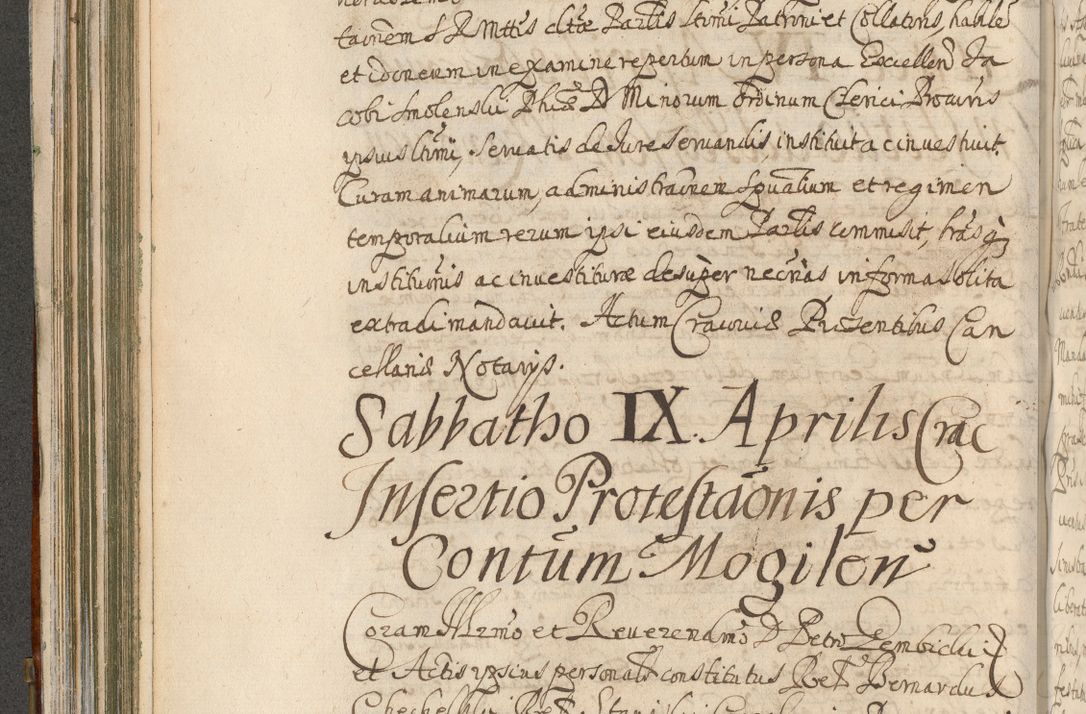 taõnem S R Mttis dictæ Parlis Ultimi Patroni et Collatoris, habilẽ
et idoneum in examine repertum in persona Excellen Ja
cobi Smolenski Phiæ D Minorum Ordinum Clerici
ipsius Ultimi, Servatis de Jure Servandis, instituit ac investiuit.
Curam animarum, administraõnem Spũalium et regimen
temporalium rerum ipsi eiusdem Parlis commisit, lrãsq
institutõnis ac investituræ desuper necrias in forma Solita
extradi mandavit. Actum Cracoviæ Præsentibus Can
cellariæ Notarijs.
Sabbatho IX. Aprilis Crac
Insertio Protestaõnis per
Contũm Mogilen
Coram Illrmo et Reverendmo D Petro Gembicki
et Actis ipsius personalr constitutus Rel Bernardus